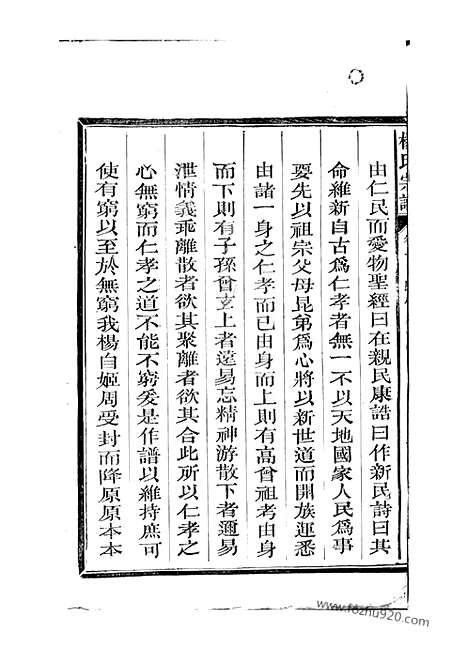 楊氏宗譜
由仁民而愛物聖經曰在親民康誥曰作新民詩曰其
命維新自古爲仁孝者無一不以天地國家人民爲事
要先以祖宗父母昆第爲心將以新世道而開族運悉
由諸一身之仁孝而已由身而上則有高曾祖考由身
而下則有子孫曾玄上者遠易忘精神游散下者邇易
泄情義乖離散者欲其聚離者欲其合此所以仁孝之
心無窮而仁孝之道不能不窮爰是作譜以維持庶可
使有窮以至於無窮我楊自姬周受封而降原原本本
www.fozhu920.com